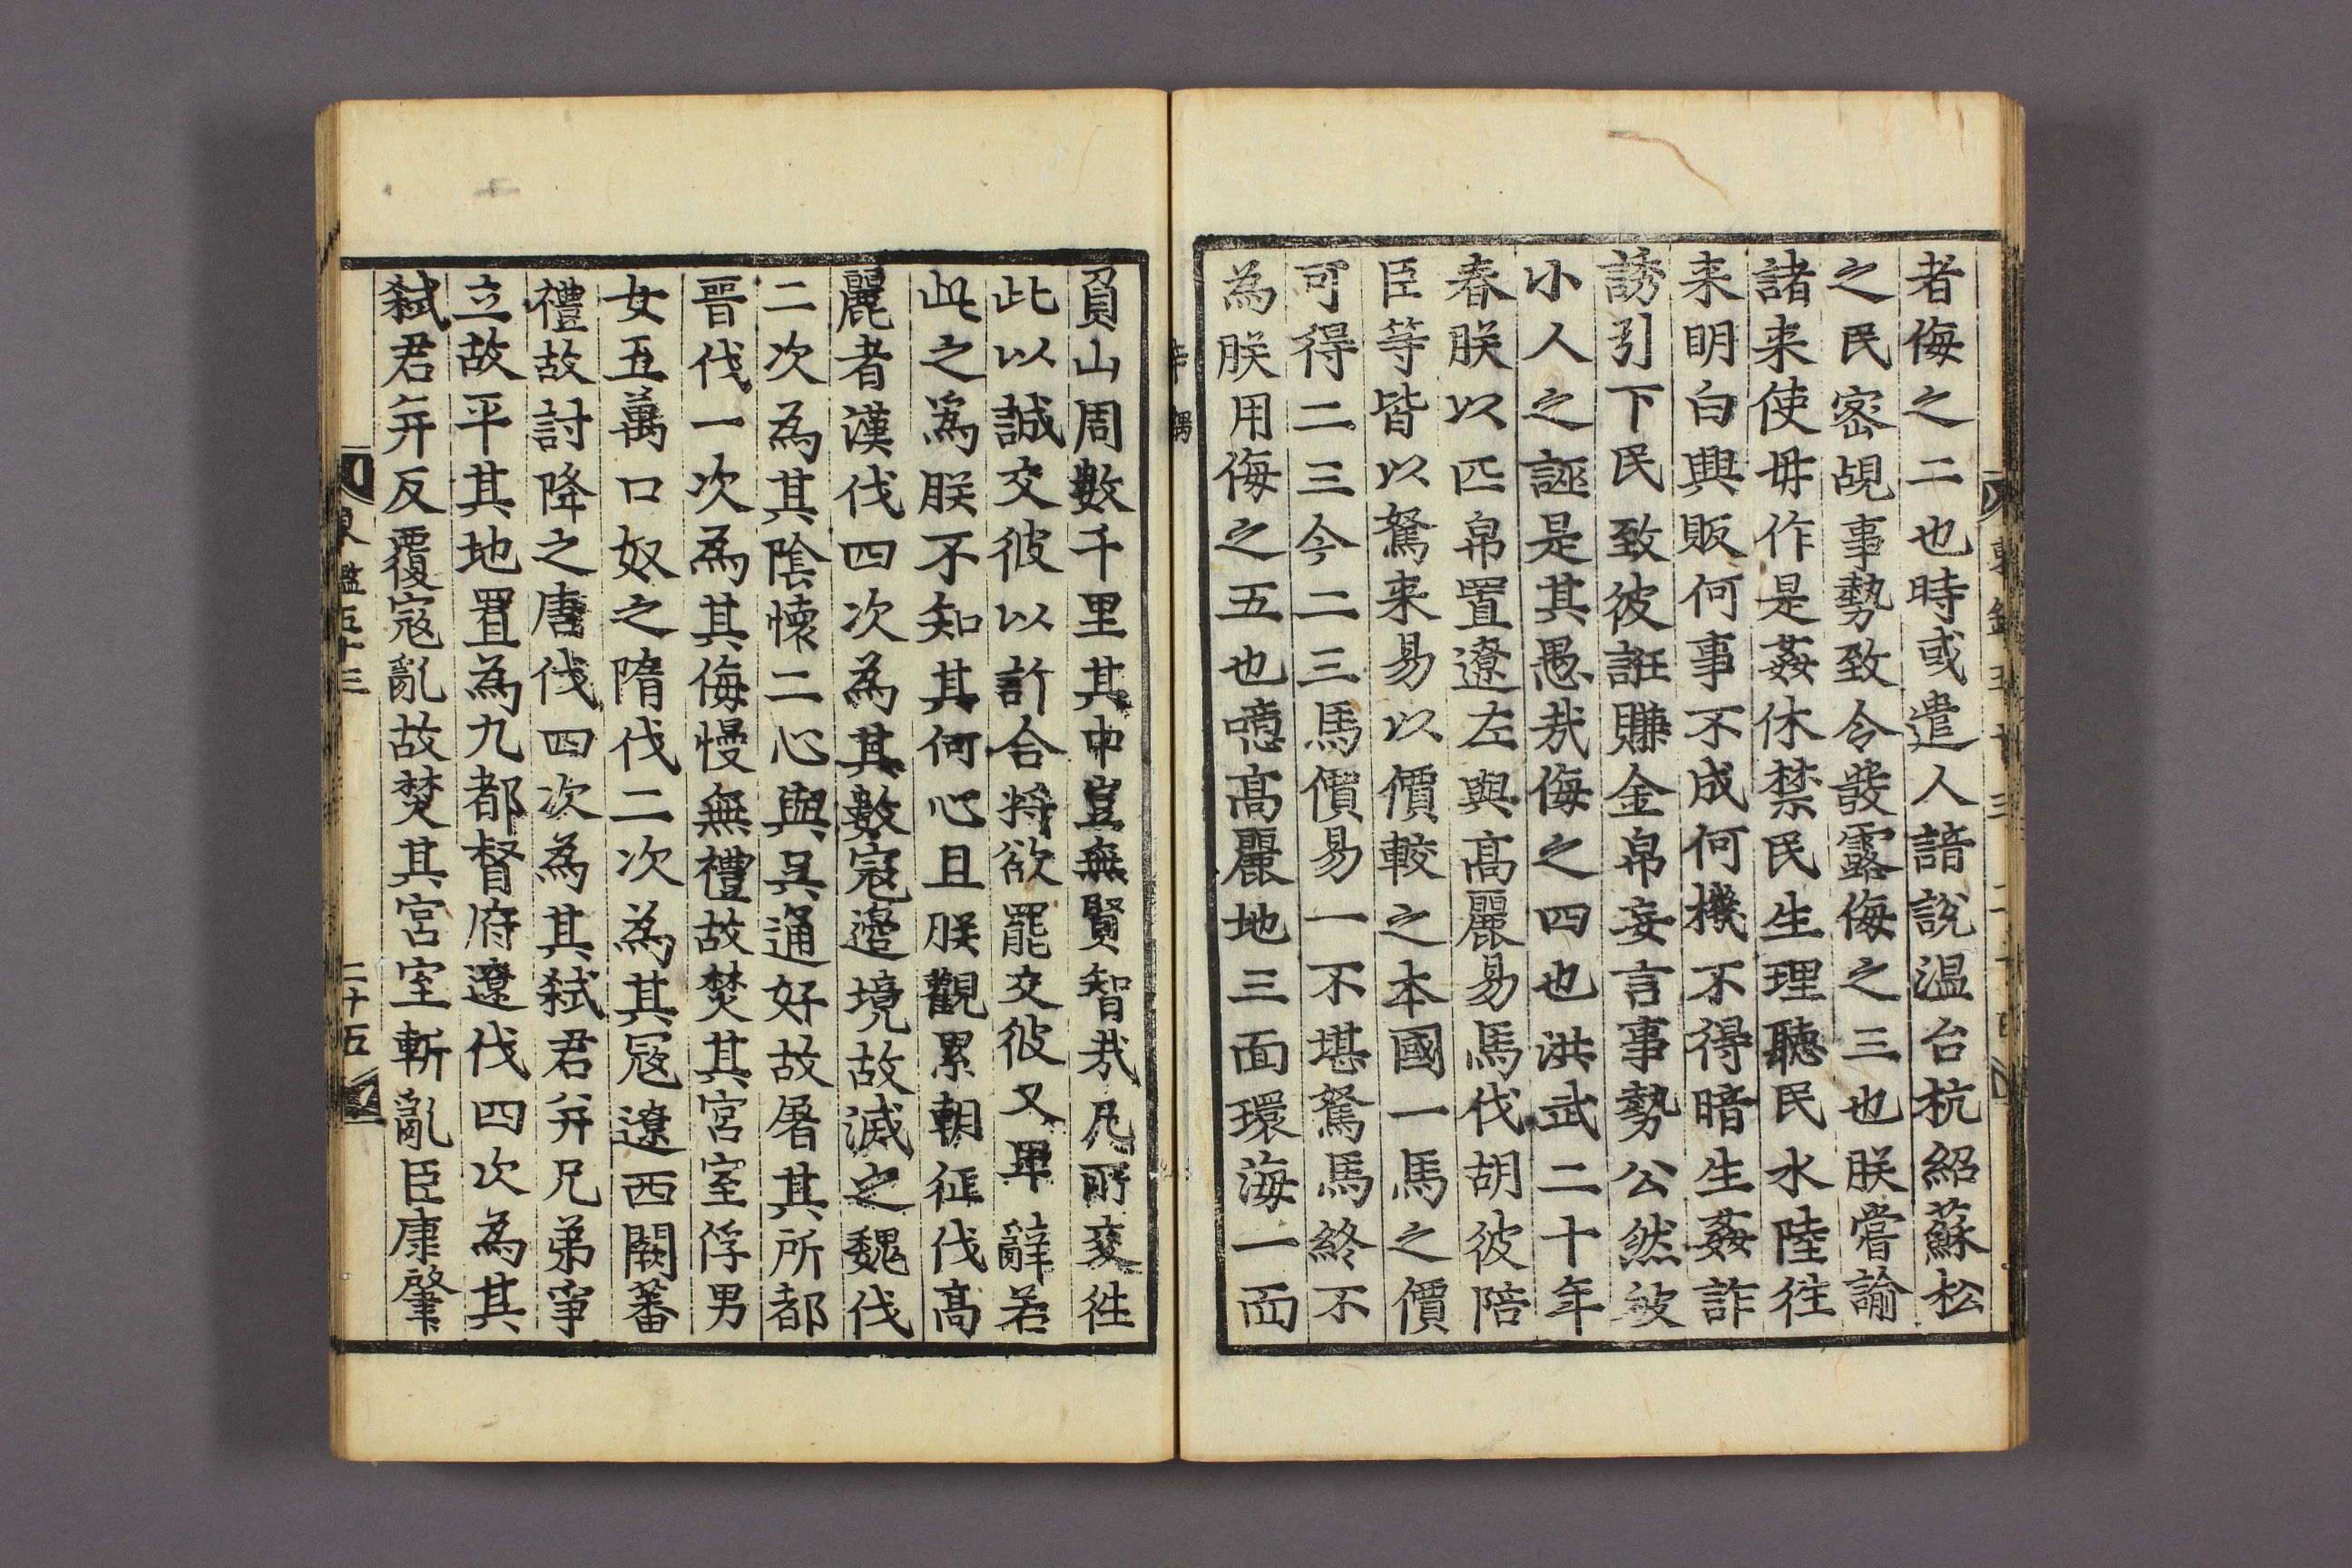 者侮之二也時或遣人諳說温台杭紹蘇松
之民密覘事勢致令發露侮之三也朕嘗諭
諸来使毋作是姦休禁民生理聽民水陸徃
来明白興販何事不成何機不得暗生姦詐
誘引下民致彼誑賺金帛妄言事勢公然被
小人之誣是其愚㦲侮之四也洪武二十年
春朕以匹帛置遼左與髙麗易馬伐胡彼陪
臣等皆以駑来易以價較之本國一馬之價
可得二三今二三馬價易一不堪駑馬終不
為朕用侮之五也噫髙麗地三面環海一面
負山周數千里其中豈無賢智㦲凡所交徃
此以誠交彼以詐合将欲罷交彼又卑辭若
此之為朕不知其何心且朕觀累朝征伐髙
麗者漢伐四次為其數寇邊境故滅之魏伐
二次為其陰懐二心與吳通好故屠其所都
晉伐一次為其侮慢無禮故焚其宮室俘男
女五萬口奴之隋伐二次為其寇遼西闕蕃
禮故討降之唐伐四次為其弑君并兄弟爭
立故平其地置為九都督府遼伐四次為其
弑君并反覆寇亂故焚其宮室斬亂臣康肇
鑑五十三
二十五